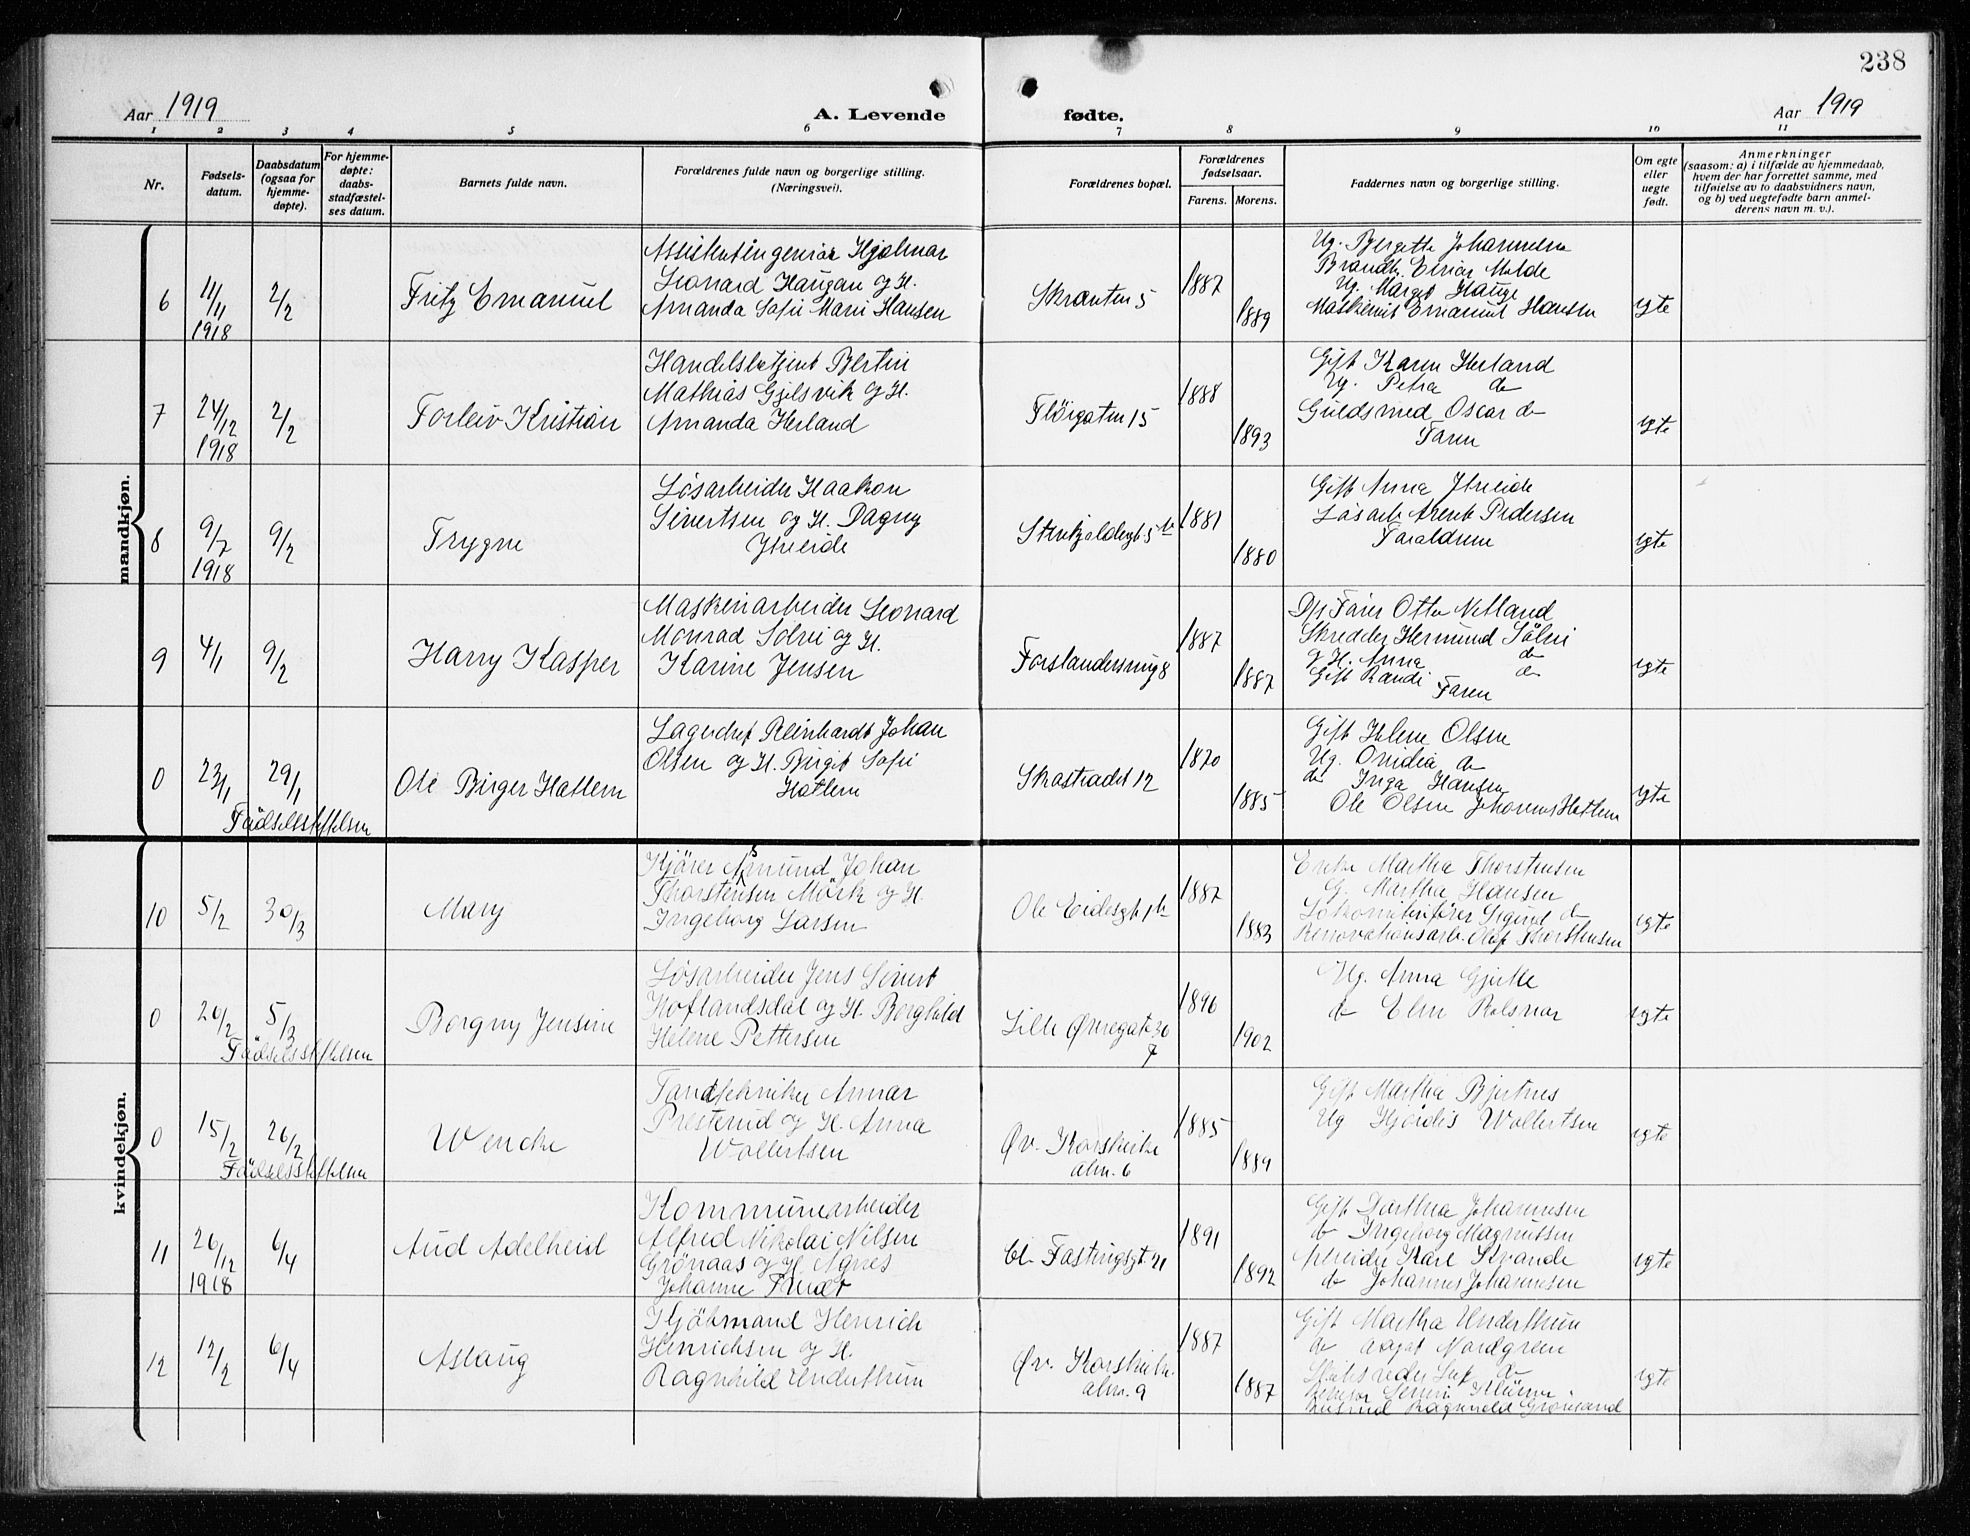 238
Aar 1919
A. Levende fødte.
Aar 1919
1 2 3 4 5 6 7 8 9 10 11
Nr.
Fødsels-
datum.
Daabsdatum
(ogsaa for
hjemme-
døpte).
For hjemme-
døpte:
daabs-
stadfæstel-
ses datum.
Barnets fulde navn.
Forældrenes fulde navn og borgerlige stilling.
(Næringsvei).
Forældrenes bopæl.
Forældrenes
fødselsaar.
Farens. Morens.
Faddernes navn og borgerlige stilling.
Om egte
eller
uegte
født.
Anmerkninger
(saasom: a) i tilfælde av hjemmedaab,
hvem der har forrettet samme, med
tilføielse av to daabsvidners navn,
og b) ved uegtefødte barn anmel-
derens navn m. v.).
mandkjøn.
6
11/11
1918
2/2
Fritz Emanuel
Assistentingeniør Hjalmar
Leonard Haugan og H.
Amanda Sofie Marie Hansen
Skranten 5
1887
1889
Ug. Bergitte Johannesen
Brandk. Einar Molde
Ug. Margit Hauge
Maskinist Emanuel Hansen
egte
7
24/12
1918
2/2
Torleiv Kristian
Handelsbetjent Bertin
Mathias Gjelsvik og H.
Amanda Herland
Fløigaten 15
1888
1893
Gift Karen Herland
Ug. Petra do
Guldsmed Oscar do
Faren
egte
8
9/7
1918
9/2
Trygve
Løsarbeider Haakon
Sivertsen og H. Dagny
Ytreeide
1881
1880
Gift Anna Ytreeide
Løsarb. Arent Pedersen
egte
9
4/1
9/2
Harry Kasper
Maskinarbeider Leonard
Monrad Solvi og H.
Karine Jensen
Forskandersmug 8
1887
1887
Otto Netland
Skredder Hermund Sølvi
og H. Anna do
Gift Randi do
Faren
egte
0
23/1
29/1
Fødselsstiftelsen
Ole Birger Hatlem
Lagerchef Reinhardt Johan
Olsen og H. Birgit Sofie
Hatlem
Skostrædet 12
1870
1885
Gift Helene Olsen
Ug. Ovidia do
do Inga Hansen
Ole Olsen Johannes Hatlem
egte
kvindekjøn.
10
5/2
30/3
Mary
Kjører Asmund Johan
Thorstensen Mørk og H.
Ingeborg Larsen
1887
1883
Enke Martha Thorstensen
G. Martha Hansen
Lokomotivfører Sigurd do
Renovationsarb. Olaf Thorstensen
egte
0
20/2
5/3
Fødselsstiftelsen
Borgny Jensine
Løsarbeider Jens Sivert
Hoflandsdal og H. Borghild
Helene Pettersen
Lille Øvregate 30
7
1896
1902
Ug. Anna
do Elen
egte
0
15/2
26/2
Fødselsstiftelsen
Wencke
Tandtekniker Annar
Presterud og H. Anna
Wollertsen
Øv. Korskirke
alm. 6
1885
1889
Gift Martha Bjertnes
Ug Hjørdis Wollertsen
egte
11
26/12
1918
6/4
Aud Adelheid
Kommunearbeider
Alfred Nikolai Nilsen
Grønaas og H. Agnes
Johanne
Cl. Fastingsgt. 21
1891
1892
Gift Dorthea Johannesen
do Ingeborg Magnussen
Arbeider Kare Strande
do Johannes Johannesen
egte
12
12/2
6/4
Aslaug
Henrich
Henrichsen og H.
Ragnhild Underthun
Øv. Korskirke
alm. 9
1887
1887
Gift Martha Underthun
do Nordgreen
egte